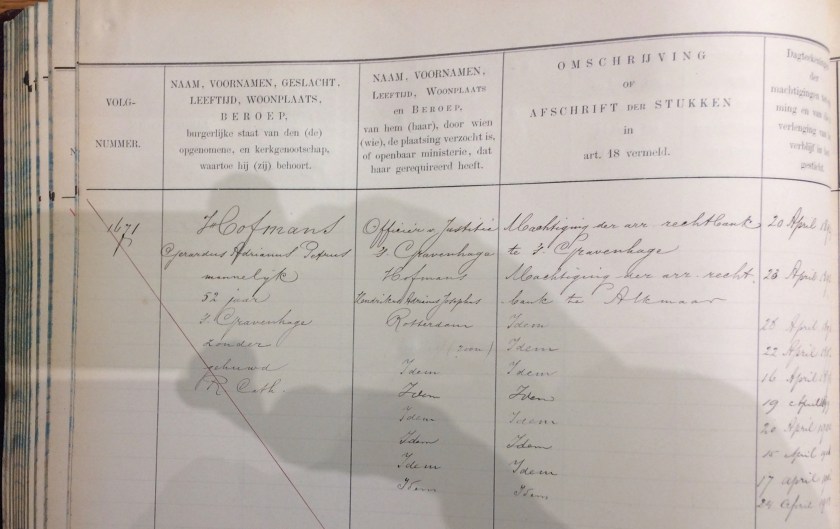 VOLG-
NUMMER.
NAAM, VOORNAMEN, GESLACHT,
LEEFTIJD, WOONPLAATS,
BEROEP,
burgerlijke staat van den (de)
opgenomene, en kerkgenootschap,
waartoe hij (zij) behoort.
NAAM, VOORNAMEN,
LEEFTIJD, WOONPLAATS
EN BEROEP,
van hem (haar), door wien
(wie), de plaatsing verzocht is,
of openbaar ministerie, dat
haar gerequireerd heeft.
OMSCHRIJVING
OF
AFSCHRIFT DER STUKKEN
in
art. 18 vermeld.
der
machtigingen
ming en van
verlenging
verblijf in het
gesticht.
N
1671
Hofmans
Gerardus Adrianus Petrus
mannelijk
52 jaar
's Gravenhage
zonder
gehuwd
R. Cath.
Officier v. Justitie
's Gravenhage
Hofmans
Hendrikus Adrianus Josephus
Rotterdam
(zoon)
Idem
Idem
Idem
Idem
Idem
Idem
Machtiging der arr. rechtbank
te 's Gravenhage
Machtiging der arr. recht
bank te Alkmaar
Idem
Idem
Idem
Idem
Idem
Idem
Idem
Idem
20 April
23 April
28 April
22 April
16 April
19 April
20 April
15 April
17 April
24 April